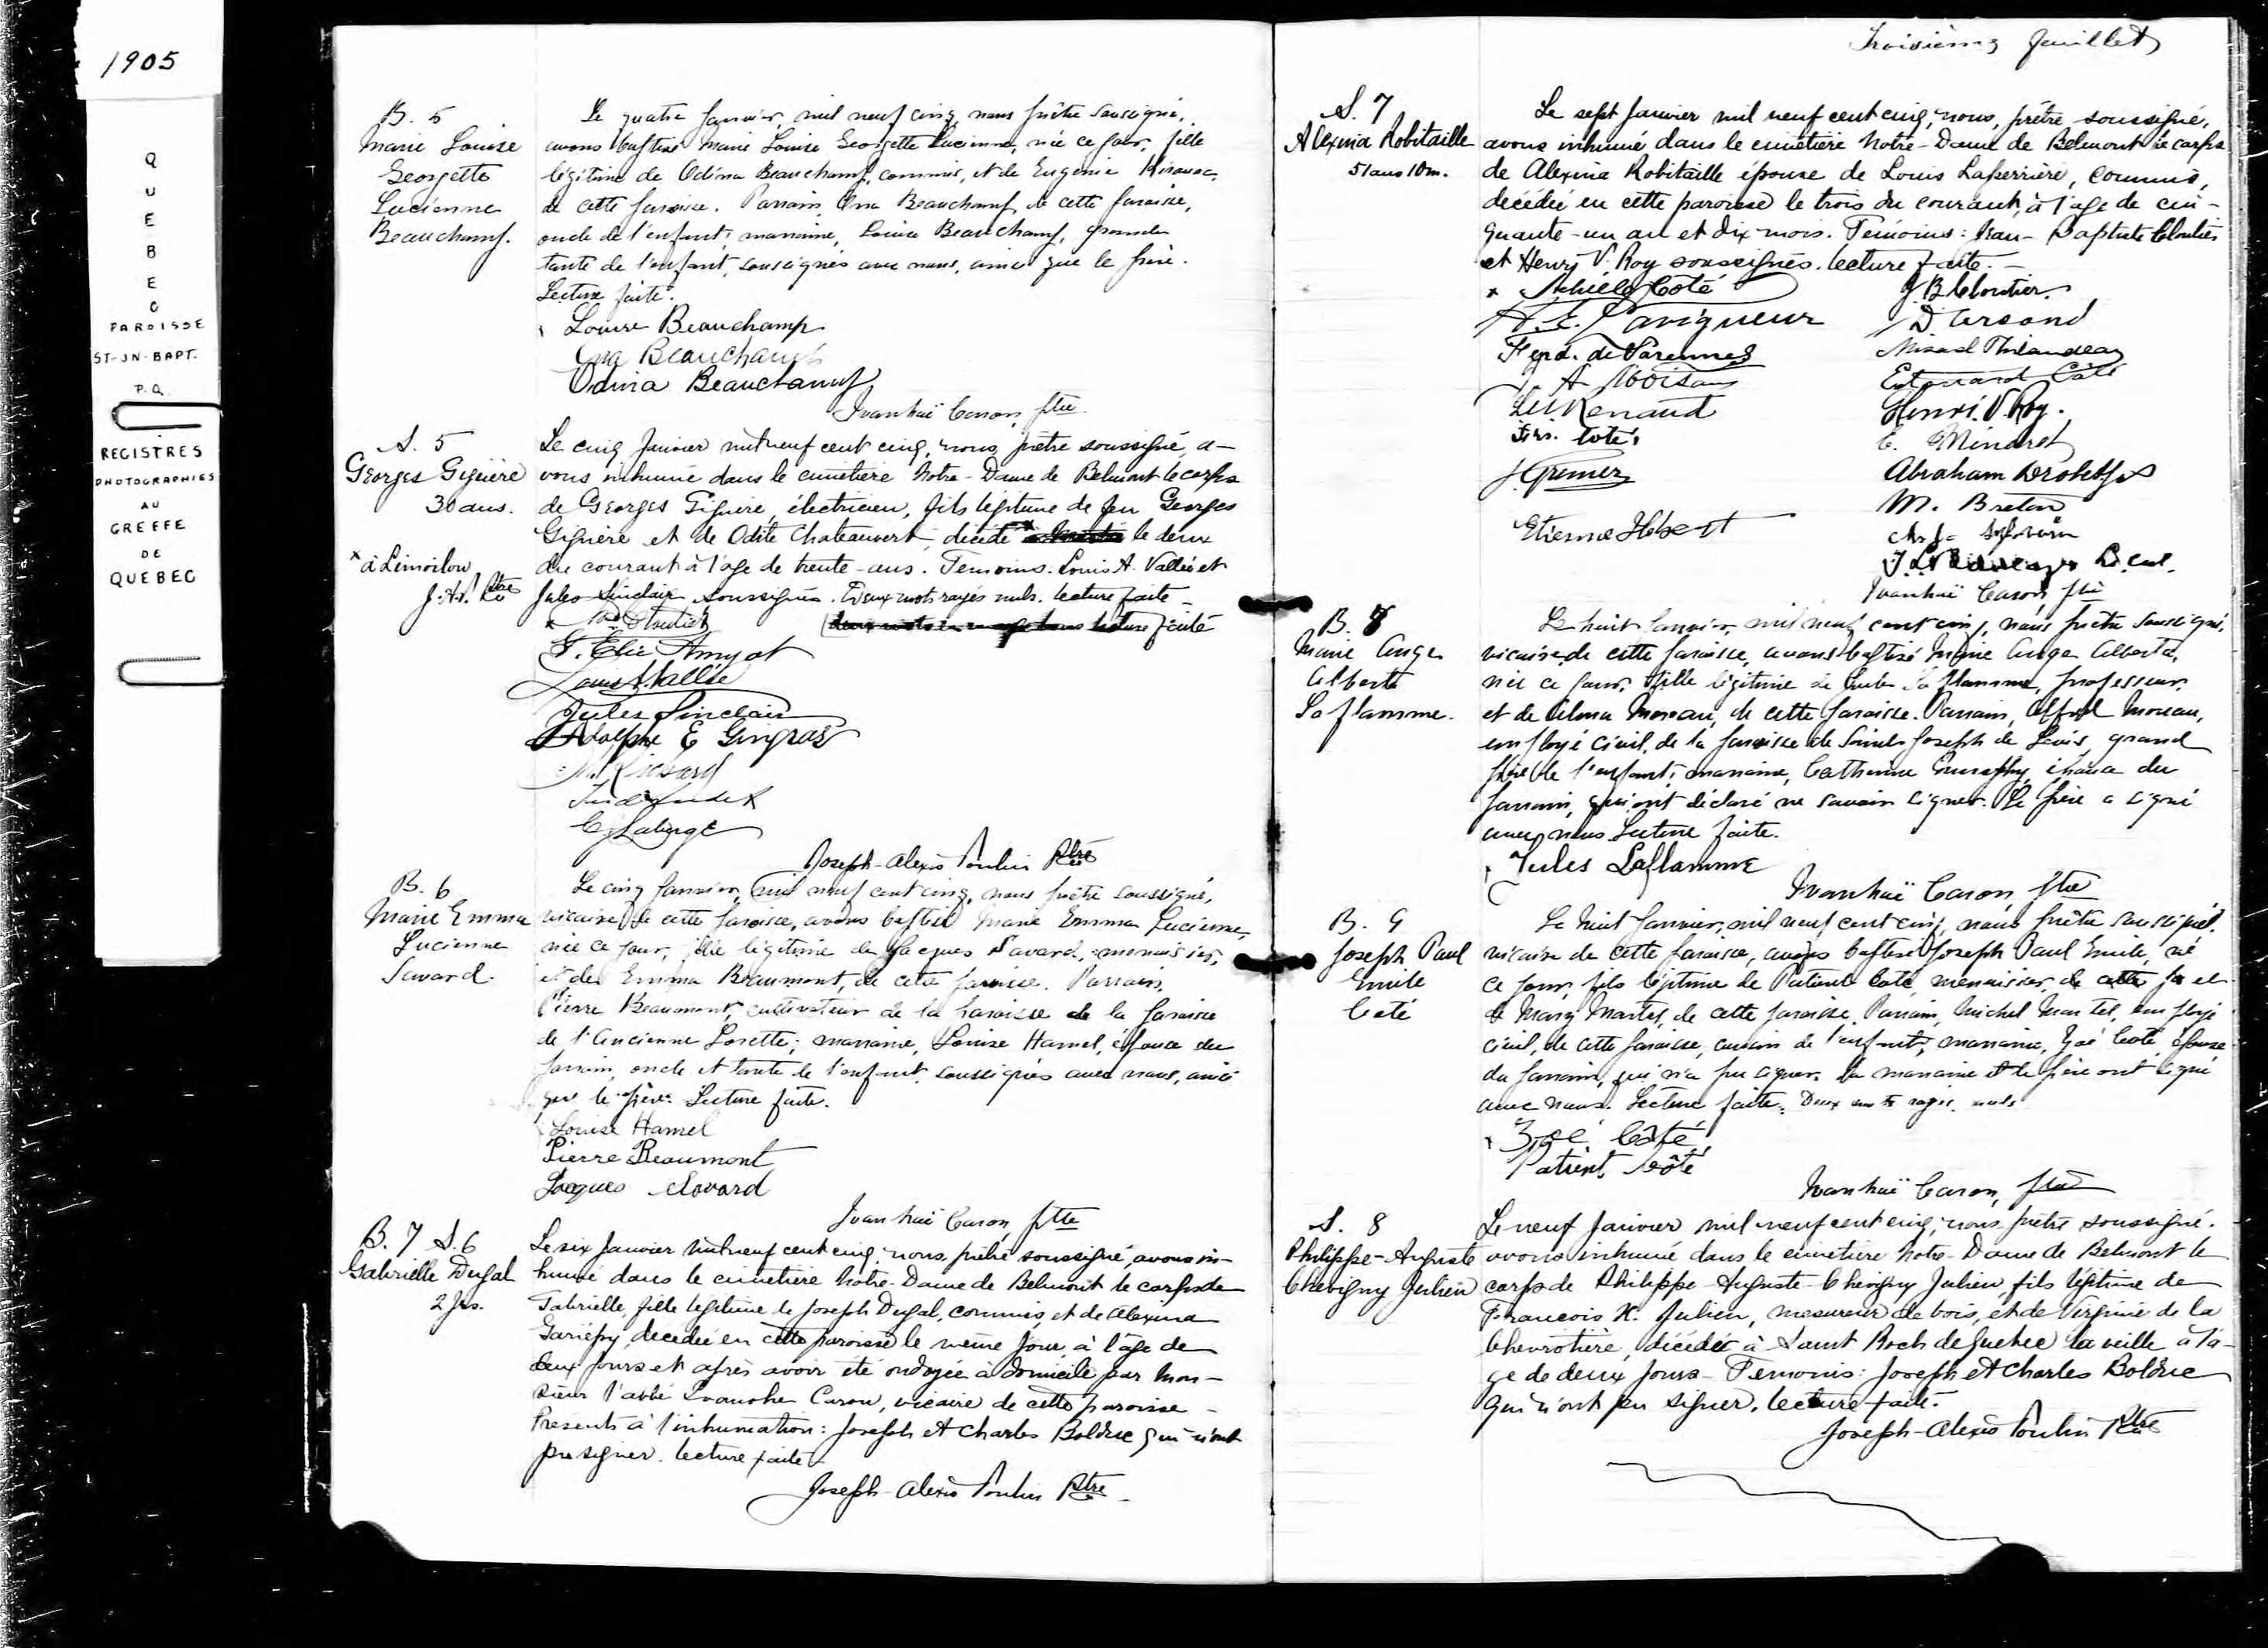 1905
QUEBEC
PAROISSE
ST-JN-BAPT.
P.Q.
REGISTRES
PHOTOGRAPHIES
AU
GREFFE
DE
QUEBEC
B. 5
Marie Louise
Georgette
Lucienne
Beauchamp.
Le quatre janvier, mil neuf cinq, nous prêtre soussigné,
avons baptisé Marie Louise Georgette Lucienne, née ce jour, fille
légitime de Odina Beauchamp, commis, et de Eugenie
de cette paroisse. Parrain, Beauchamp de cette paroisse,
oncle de l'enfant; marraine, Louise Beauchamp, grande
tante de l'enfant, soussignés avec nous, ainsi que le père.
Lecture faite.
Louise Beauchamp
Beauchamp
Odina Beauchamp
Ivanhoë Caron, ptre
S. 5
Georges Giguère
30 ans.
x à Limoilou
J. A. P. Ptre
Le cinq Janvier mil neuf cent cinq, nous, prêtre soussigné, a-
vons inhumé dans le cimetière Notre-Dame de Belmont le corps
de Georges Giguère, électricien, fils légitime de feu Georges
Giguère et de Odile Chateauvert, décédé x le deux
du courant à l'âge de trente-ans. Temoins: Louis A. Vallée et
Jules Sinclair soussignés. Deux mots rayés nuls. Lecture faite -
lecture faite
F. Elie Amyot
Louis A. Vallée
Jules Sinclair
Adolphe E Gingras
C. Laberge
Joseph-Alexis Poulin Ptre
B. 6
Marie Emma
Lucienne
Savard.
Le cinq janvier, mil neuf cent cinq, nous prêtre soussigné,
vicaire de cette paroisse, avons baptisé Marie Emma Lucienne,
née ce jour, fille légitime de Jacques Savard, menuisier,
et de Emma Beaumont, de cette paroisse. Parrain,
Pierre Beaumont, cultivateur de la paroisse de la paroisse
de l'Ancienne Lorette; marraine, Louise Hamel, épouse du
parrain, oncle et tante de l'enfant, soussignés avec nous, ainsi
que le père. Lecture faite.
Louise Hamel
Pierre Beaumont
Jacques Savard
Ivanhoë Caron, ptre
B. 7 S. 6
Gabrielle Dugal
2 jrs.
Le six Janvier mil neuf cent cinq, nous, prêtre soussigné, avons in-
humé dans le cimetière Notre-Dame de Belmont le corps de
Gabrielle, fille légitime de Joseph Dugal, commis, et de Alexina
Gariépy, décédée en cette paroisse le même jour, à l'âge de
deux jours et après avoir été ondoyée à domicile par Mon-
sieur l'abbé Ivanohe Caron, vicaire de cette paroisse -
Présents à l'inhumation: Joseph et Charles Bolduc qui n'ont
pu signer. Lecture faite -
Joseph-Alexis Poulin Ptre
Troisième feuillet
S. 7
Alexina Robitaille
51 ans 10 m.
Le sept Janvier mil neuf cent cinq, nous, prêtre soussigné,
avons inhumé dans le cimetière Notre-Dame de Belmont le corps
de Alexina Robitaille épouse de Louis Laferrière, commis,
décédée en cette paroisse le trois du courant, à l'âge de cin-
quante-un an et dix mois. Témoins: Jean-Baptiste Cloutier
et Henry V. Roy soussignés. Lecture faite. -
x Achille Coté
J. B. Cloutier
Lavigueur
D. Arsand
Ferd. de Varennes
Edouard Côté
Renaud
Henri. V. Roy.
Coté
Abraham Drolet
M. Breton
Etienne Hébert
Ivanhoë Caron ptre
B. 8
Marie Ange
Alberta
Laflamme.
Le huit janvier, mil neuf cent cinq, nous prêtre soussigné,
vicaire de cette paroisse, avons baptisé Marie Ange Alberta,
née ce jour, fille légitime de Jules Laflamme, professeur,
et de Moreau, de cette paroisse. Parrain, Alfred Moreau,
employé civil, de la paroisse de Saint Joseph de Lévis, grand
père de l'enfant; marraine, Catherine Murphy, épouse du
parrain, qui ont déclaré ne savoir signer. Le père a signé
avec nous. Lecture faite.
Jules Laflamme
Ivanhoë Caron, ptre
B. 9
Joseph Paul
Emile
Coté
Le huit janvier, mil neuf cent cinq, nous prêtre soussigné,
vicaire de cette paroisse, avons baptisé Joseph Paul Emile, né
ce jour, fils légitime de Patient Coté, menuisier, de cette et
de Mary Martel, de cette paroisse. Parrain, Michel Martel, employé
civil, de cette paroisse, cousin de l'enfant; marraine, Zoé Coté, épouse
du parrain, qui n'a pu signer. La marraine et le père ont signé
avec nous. Lecture faite. Deux mots rayés nuls
Zoé Côté
Patient Côté
Ivanhoë Caron, ptre
S. 8
Philippe-Auguste
Chevigny Julien
Le neuf Janvier mil neuf cent cinq, nous, prêtre soussigné,
avons inhumé dans le cimetière Notre-Dame de Belmont le
corps de Philippe-Auguste-Chevigny Julien, fils légitime de
François X. Julien, mesureur de bois, et de Virginie de la
Chevrotière, décédé à Saint Roch de Quebec la veille à l'â-
ge de deux jours - Témoins: Joseph et Charles Bolduc
qui n'ont pu signer. Lecture faite.
Joseph-Alexis Poulin Ptre